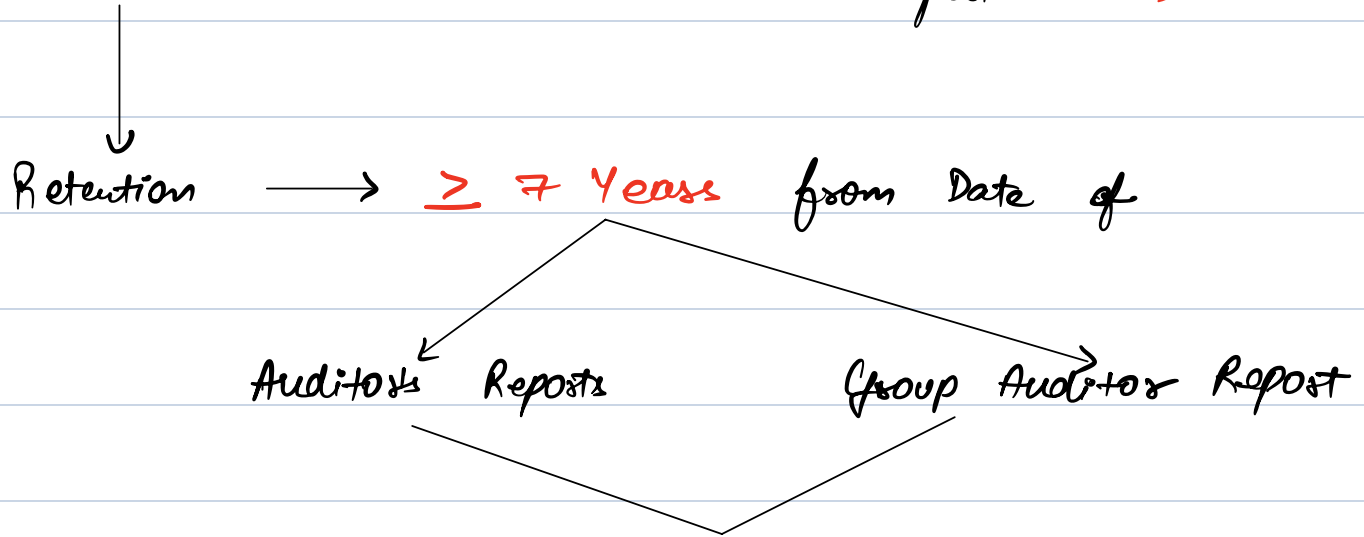 Retention → ≥ 7 Years from Date of
Auditor's Reports Group Auditor Report